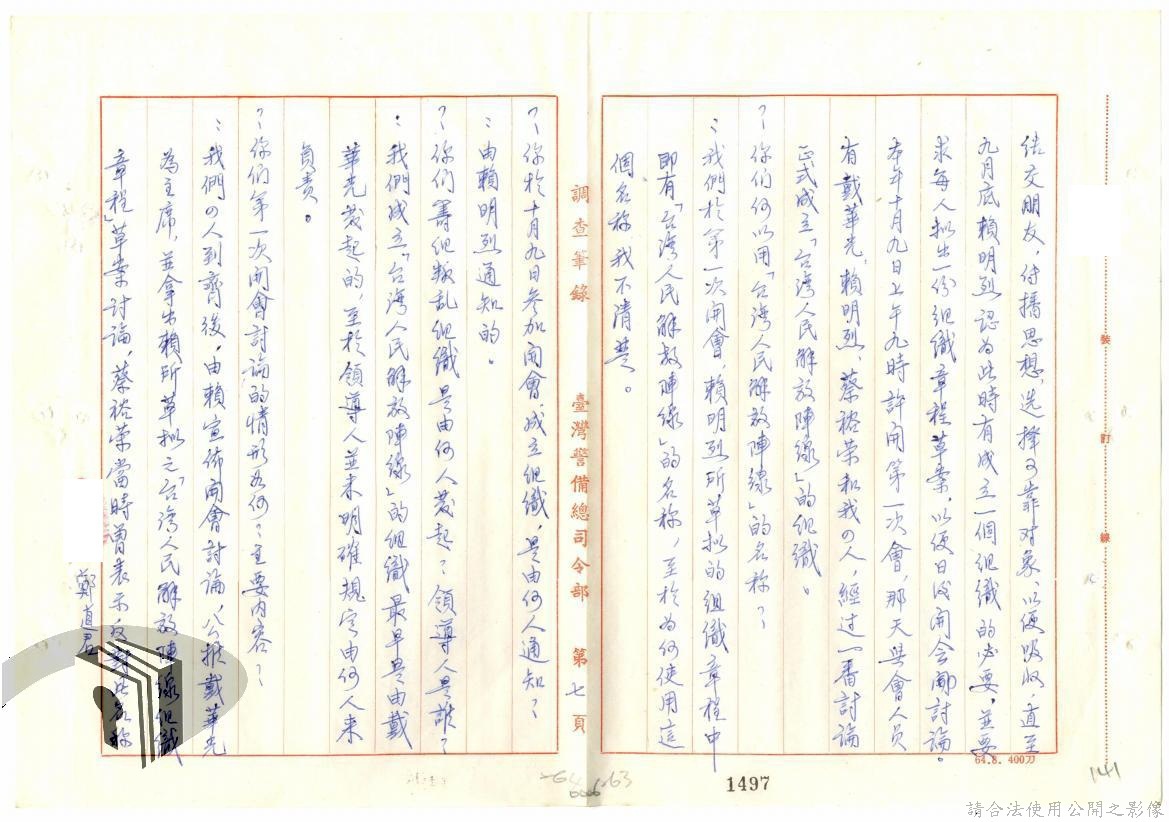 結交朋友，付播思想，选择可靠对象，以便吸收，直至
九月底賴明烈認為此時有成立一個組織的必要，並要
求每人拟出一份組織章程草案以便日後開会時討論。
本年十月九日上午九時許開第一次會，那天與會人員
有戴華光、賴明烈、蔡裕荣和我の人，經过一番討論
正式成立「台湾人民解放陣線」的组織。
？你们何以用「台湾人民解放陣線」的名称？
：我們於第一次開會，賴明烈所草拟的组織章程中
即有「台湾人民解放陣線」的名称，至於为何使用這
個名称我不清楚。
調查筆錄
臺灣警備總司令部
第七頁
？你於十月九日参加開會成立组織，是由何人通知？
：由賴明烈通知的。
？你们籌组叛乱组織是由何人發起？領導人是誰？
：我們成立「台湾人民解放陣線」的组織最早是由戴
華光發起的，至於領導人並未明確規定由何人來
負责。
？你们第一次開會討論的情形如何？主要内容？
：我們の人到齊後，由賴宣佈開會討論，公推戴華光
為主席，並拿出賴所草拟之「台湾人民解放陣線组織
章程」草案討論，蔡裕荣當時曾表示反對此名称
鄭道君
裝
訂
線
64.8. 400刀
1497
141
請合法使用公開之影像